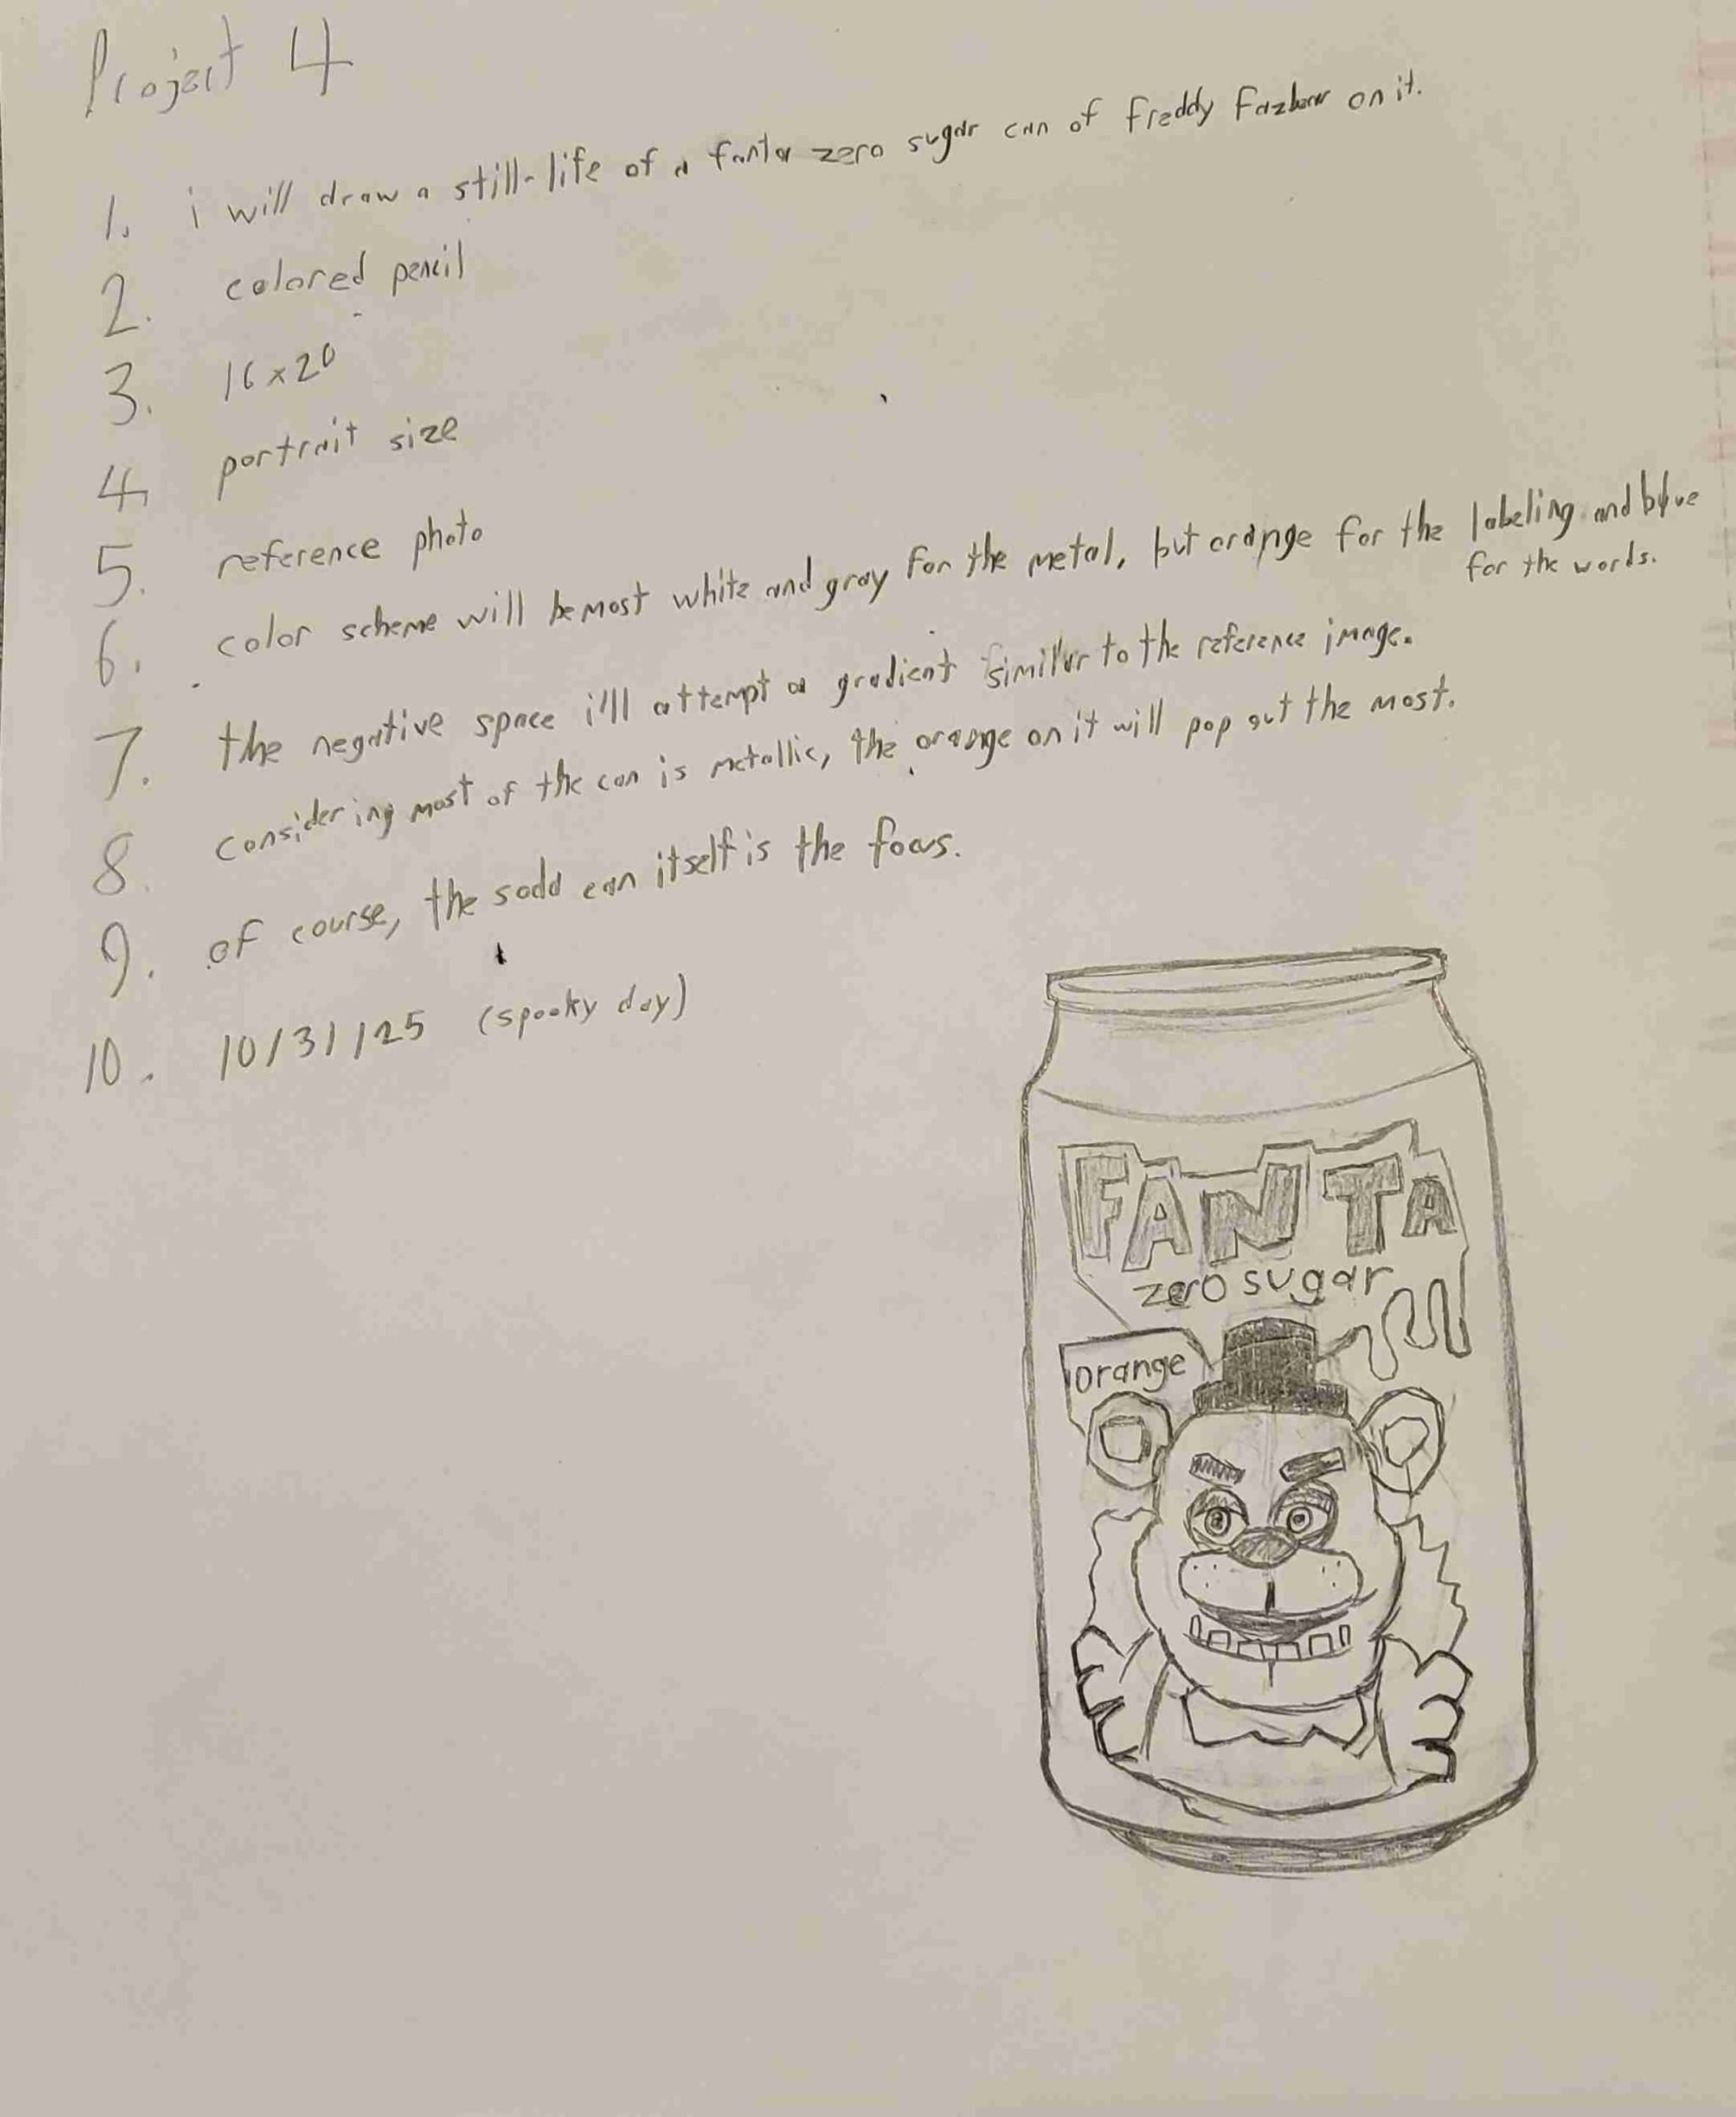 Project 4
1. i will draw a still-life of a fanta zero sugar can of Freddy Fazbear on it.
2. colored pencil
3. 16x20
4. portrait size
5. reference photo
6. color scheme will be most white and gray for the metal, but orange for the labeling and blue
for the words.
7. the negative space i'll attempt a gradient similar to the reference image.
8. considering most of the can is metallic, the orange on it will pop out the most.
9. of course, the soda can itself is the focus.
10. 10/31/25 (spooky day)
FANTA
zero sugar
orange